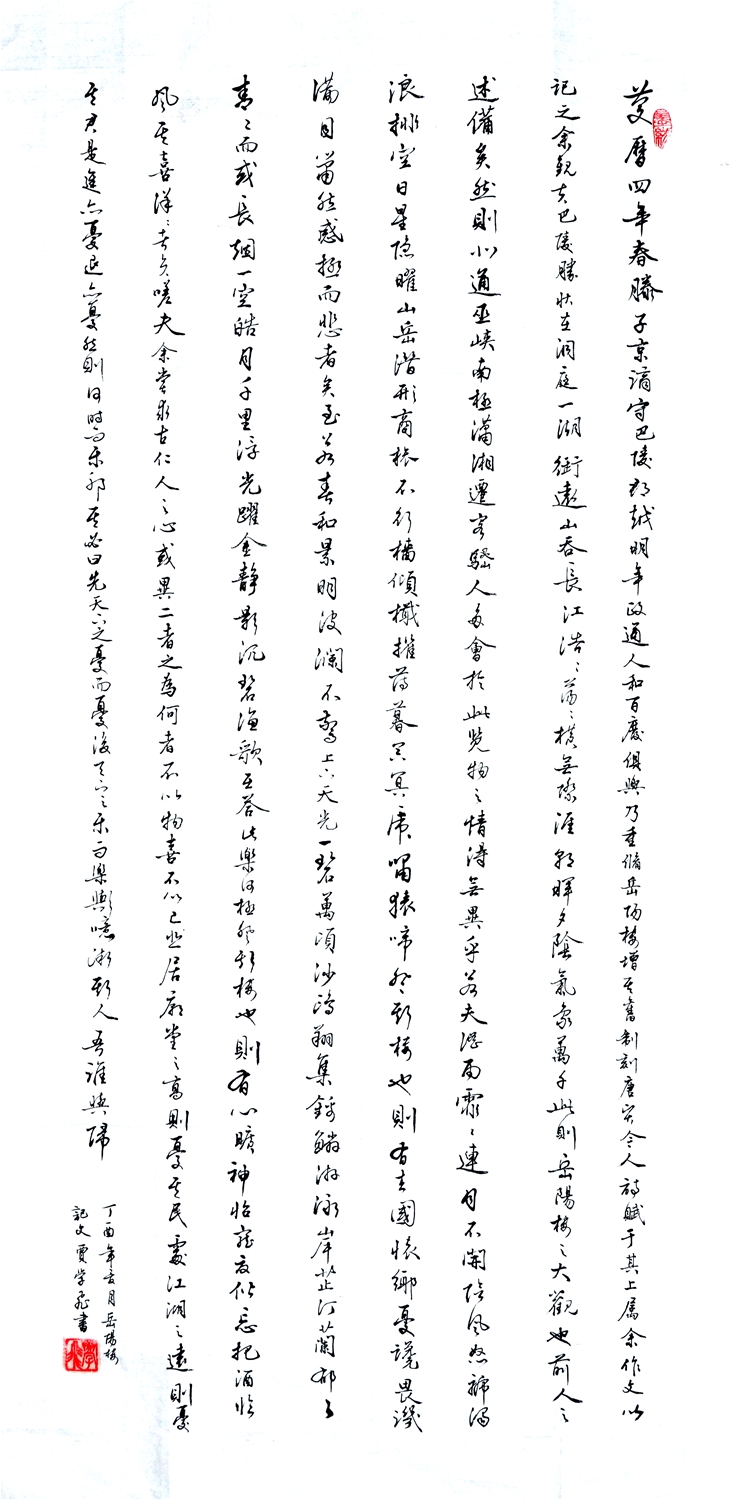 慶曆四年春滕子京謫守巴陵郡越明年政通人和百廢俱興乃重脩岳陽樓增其舊制刻唐賢今人詩賦于其上属余作文以
記之余觀夫巴陵勝状在洞庭一湖銜遠山吞長江浩〻蕩〻橫無際涯朝暉夕陰氣象萬千此則岳陽樓之大觀也前人之
述備矣然則北通巫峽南極瀟湘遷客騷人多會於此覽物之情得無異乎若夫淫雨霏〻連月不開陰風怒號濁
浪排空日星隐曜山岳潜形商旅不行檣傾檝摧薄暮冥冥虎嘯猿啼登斯樓也則有去國懷鄉憂讒畏譏
滿目蕭然感極而悲者矣至若春和景明波瀾不驚上下天光一碧萬頃沙鷗翔集錦鱗游泳岸芷汀蘭郁〻
青〻而或長烟一空皓月千里浮光躍金静影沉碧漁歌互答此樂何極登斯樓也則有心曠神怡寵辱偕忘把酒临
風其喜洋〻者矣嗟夫余嘗求古仁人之心或異二者之為何者不以物喜不以己悲居廟堂之高則憂其民處江湖之遠則憂
其君是進亦憂退亦憂然則何時而樂耶其必曰先天下之憂而憂後天下之樂而樂歟噫微斯人吾誰與歸
丁酉年 月岳陽樓
記文賈学 書